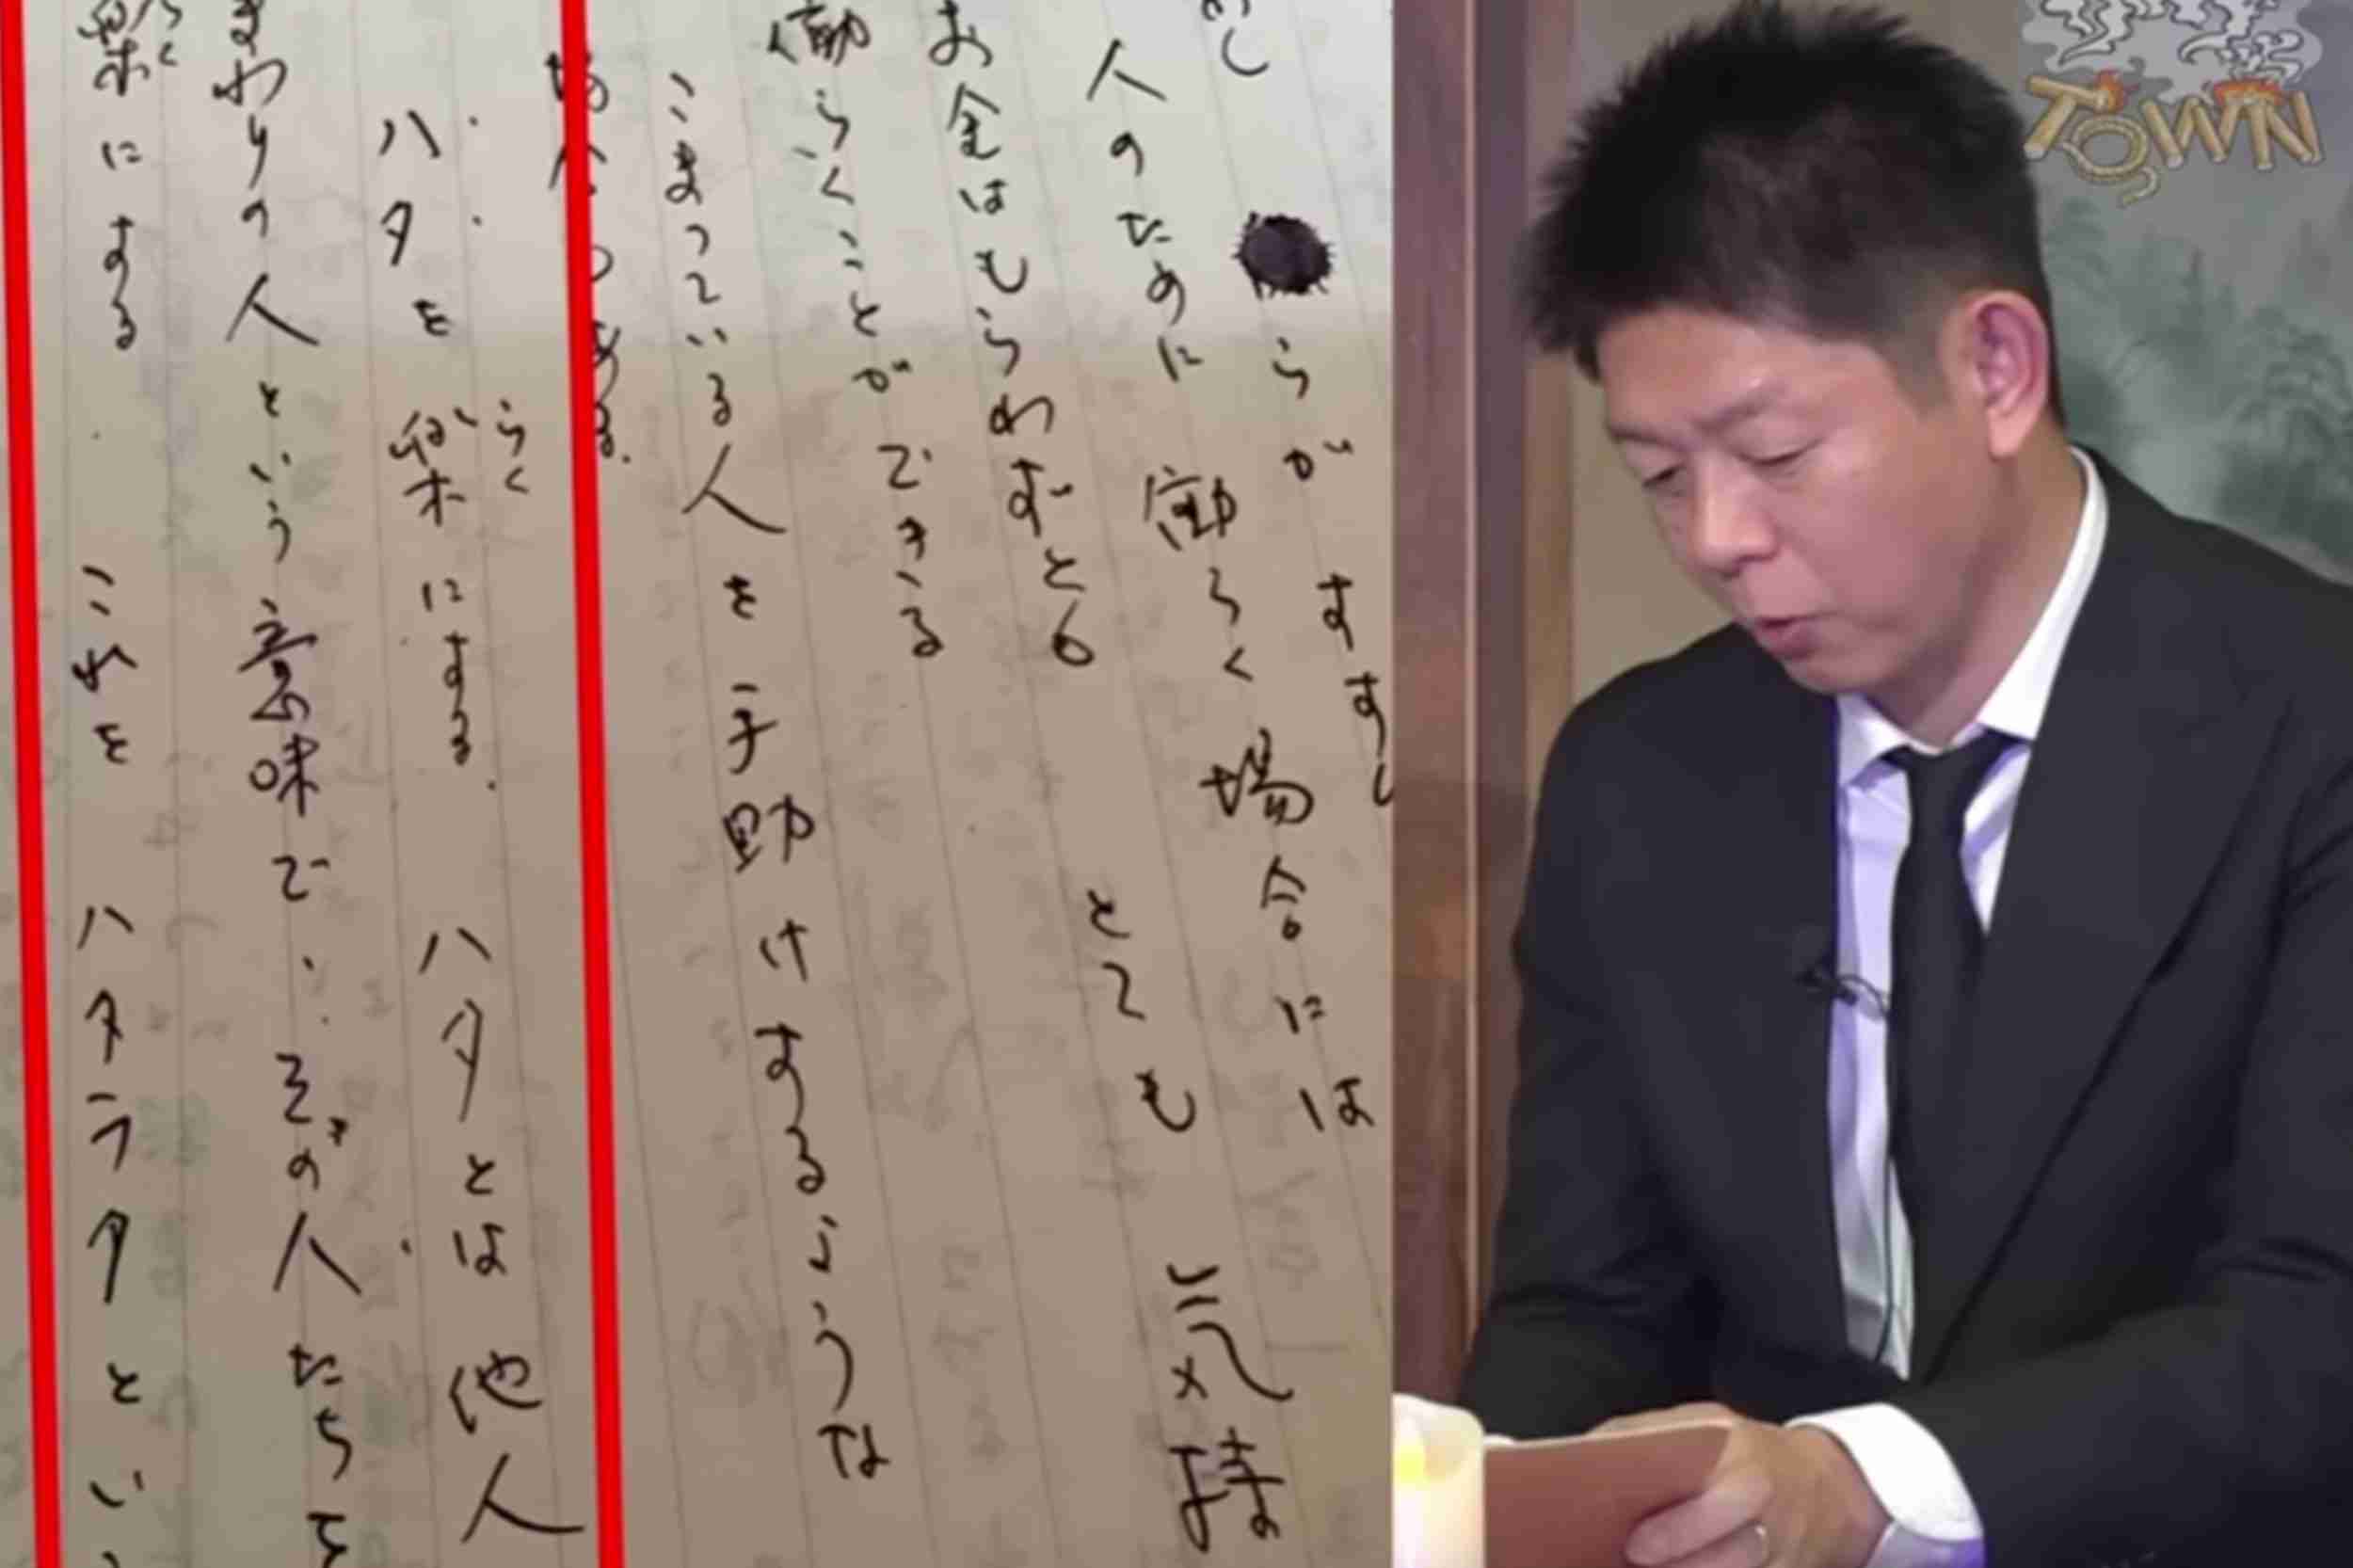 らが すす
人のために 働らく 場合には
お金はもらわずとも とても 気持
働らくことが できる
こまっている人を 手助けするような
ある.
ハタを 楽にする. ハタとは 他人
らく
まわりの人という意味で、その人たちを
楽にする これを ハタラクとい
らく
TOWN